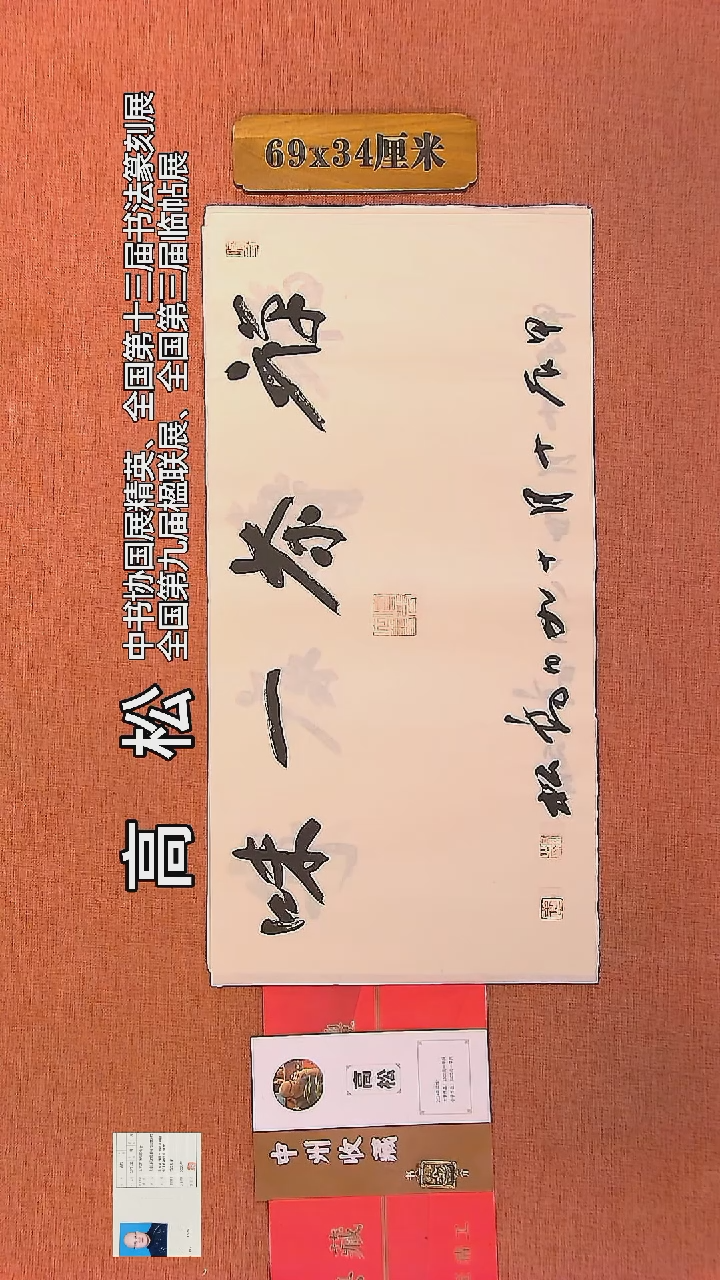 69x34厘米
高 松
中书协国展精英、全国第十三届书法篆刻展
全国第九届楹联展、全国第三届临帖展
禅茶一味
甲辰十月十又四日高松
高松
中州收藏
藏